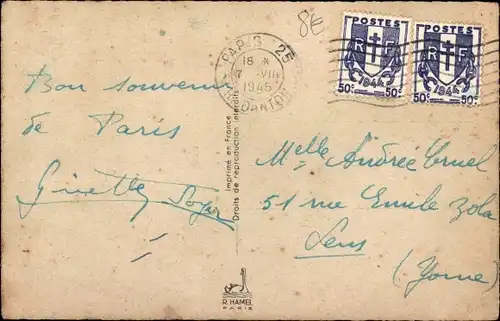 8E
PARIS 25
18 *
7 · VIII
1945
DANTON
POSTES
RF
1944
50c 50c
POSTES
RF
1944
50c 50c
Bon souvenir
de Paris
Ginette
Imprimé en France
Droits de reproduction interdits
Melle Andrée
51 rue Emile Zola
Sens
(Yonne)
R. HAMEL
PARIS